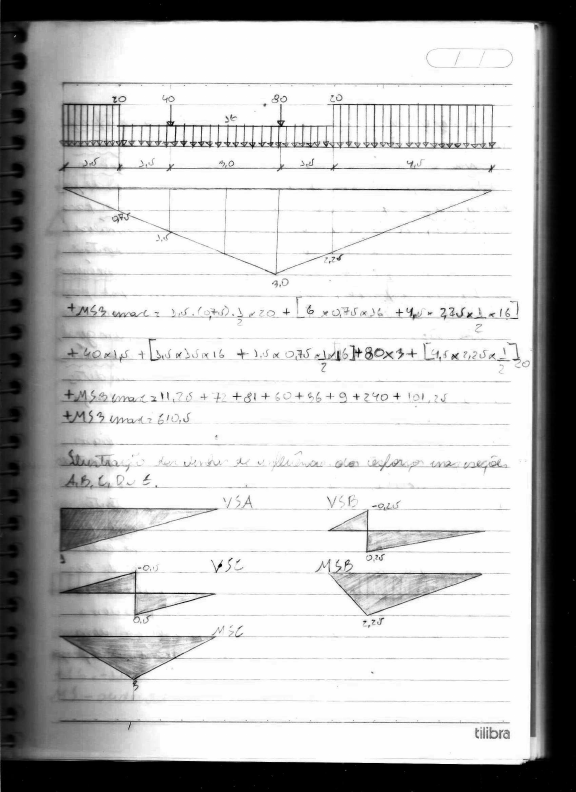 20 40 80 20
16
1,5 1,5 3,0 1,5 4,5
0,75
1,5
2,25
3,0
+MS3 max = 1,5.(0,75).1/2 x 20 + [6 x 0,75 x 16 + 4,5 x 2,25 x 1/2 x 16]
+ 40 x 1,5 + [1,5 x 1,5 x 16 + 1,5 x 0,75 x 1/2 x 16] + 80 x 3 + [4,5 x 2,25 x 1/2] 20
+MS3 max = 11,25 + 72 + 81 + 60 + 36 + 9 + 240 + 101,25
+MS3 max = 610,5
linha de influência dos esforços nas seções
A, B, C, D e E.
VSA VSB -0,25
1 0,75
-0,5 VSC MSB
0,5 2,25
MSC
3
tilibra